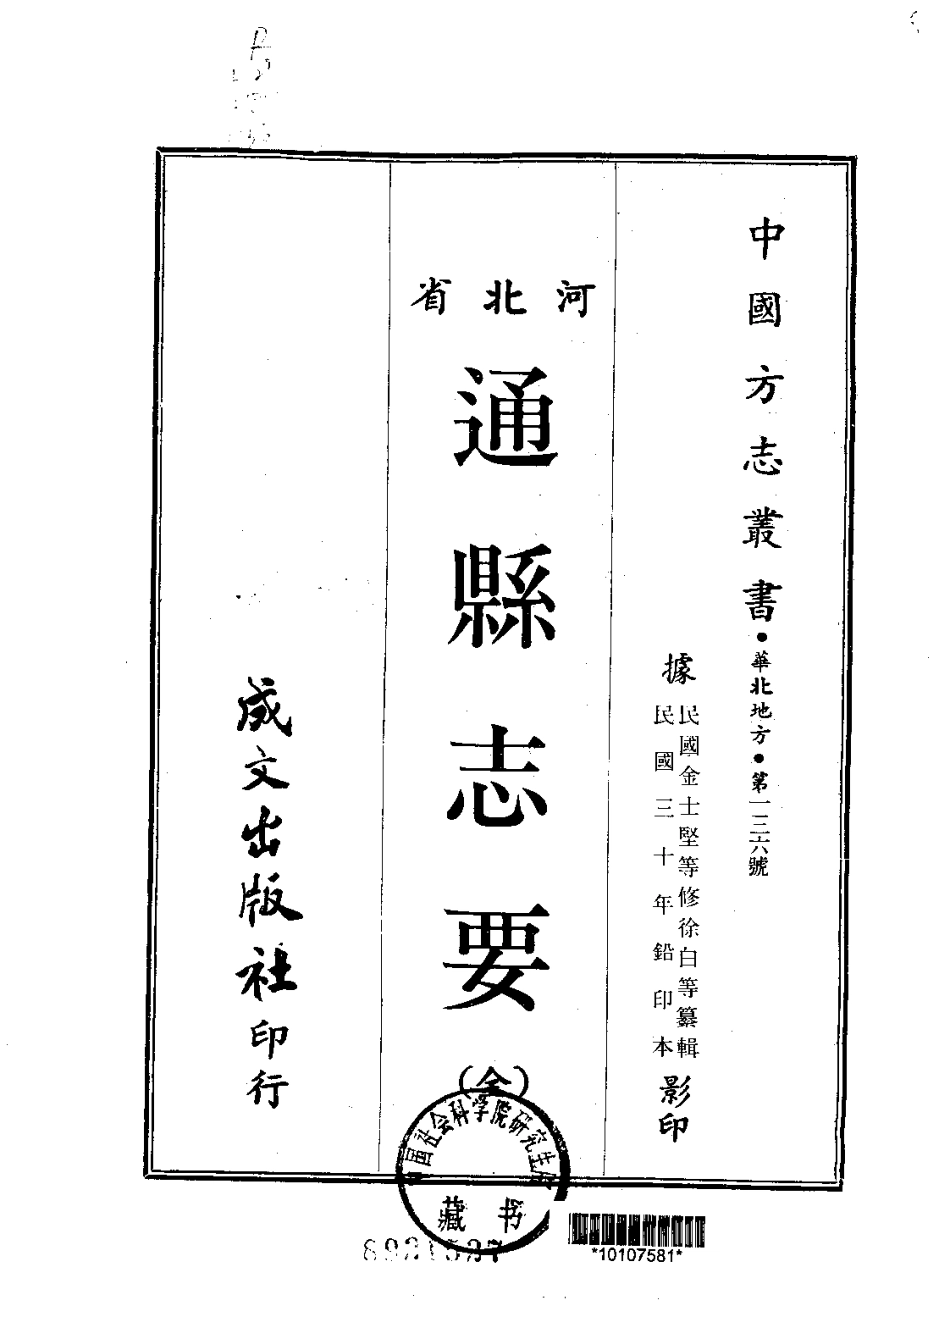 中國方志叢書・華北地方・第一三六號
據
民國金士堅等修徐白等纂輯
民國三十年鉛印本
影印
河北省
通縣志要
(全)
成文出版社印行
中国社会科学院研究生院
藏书
*10107581*